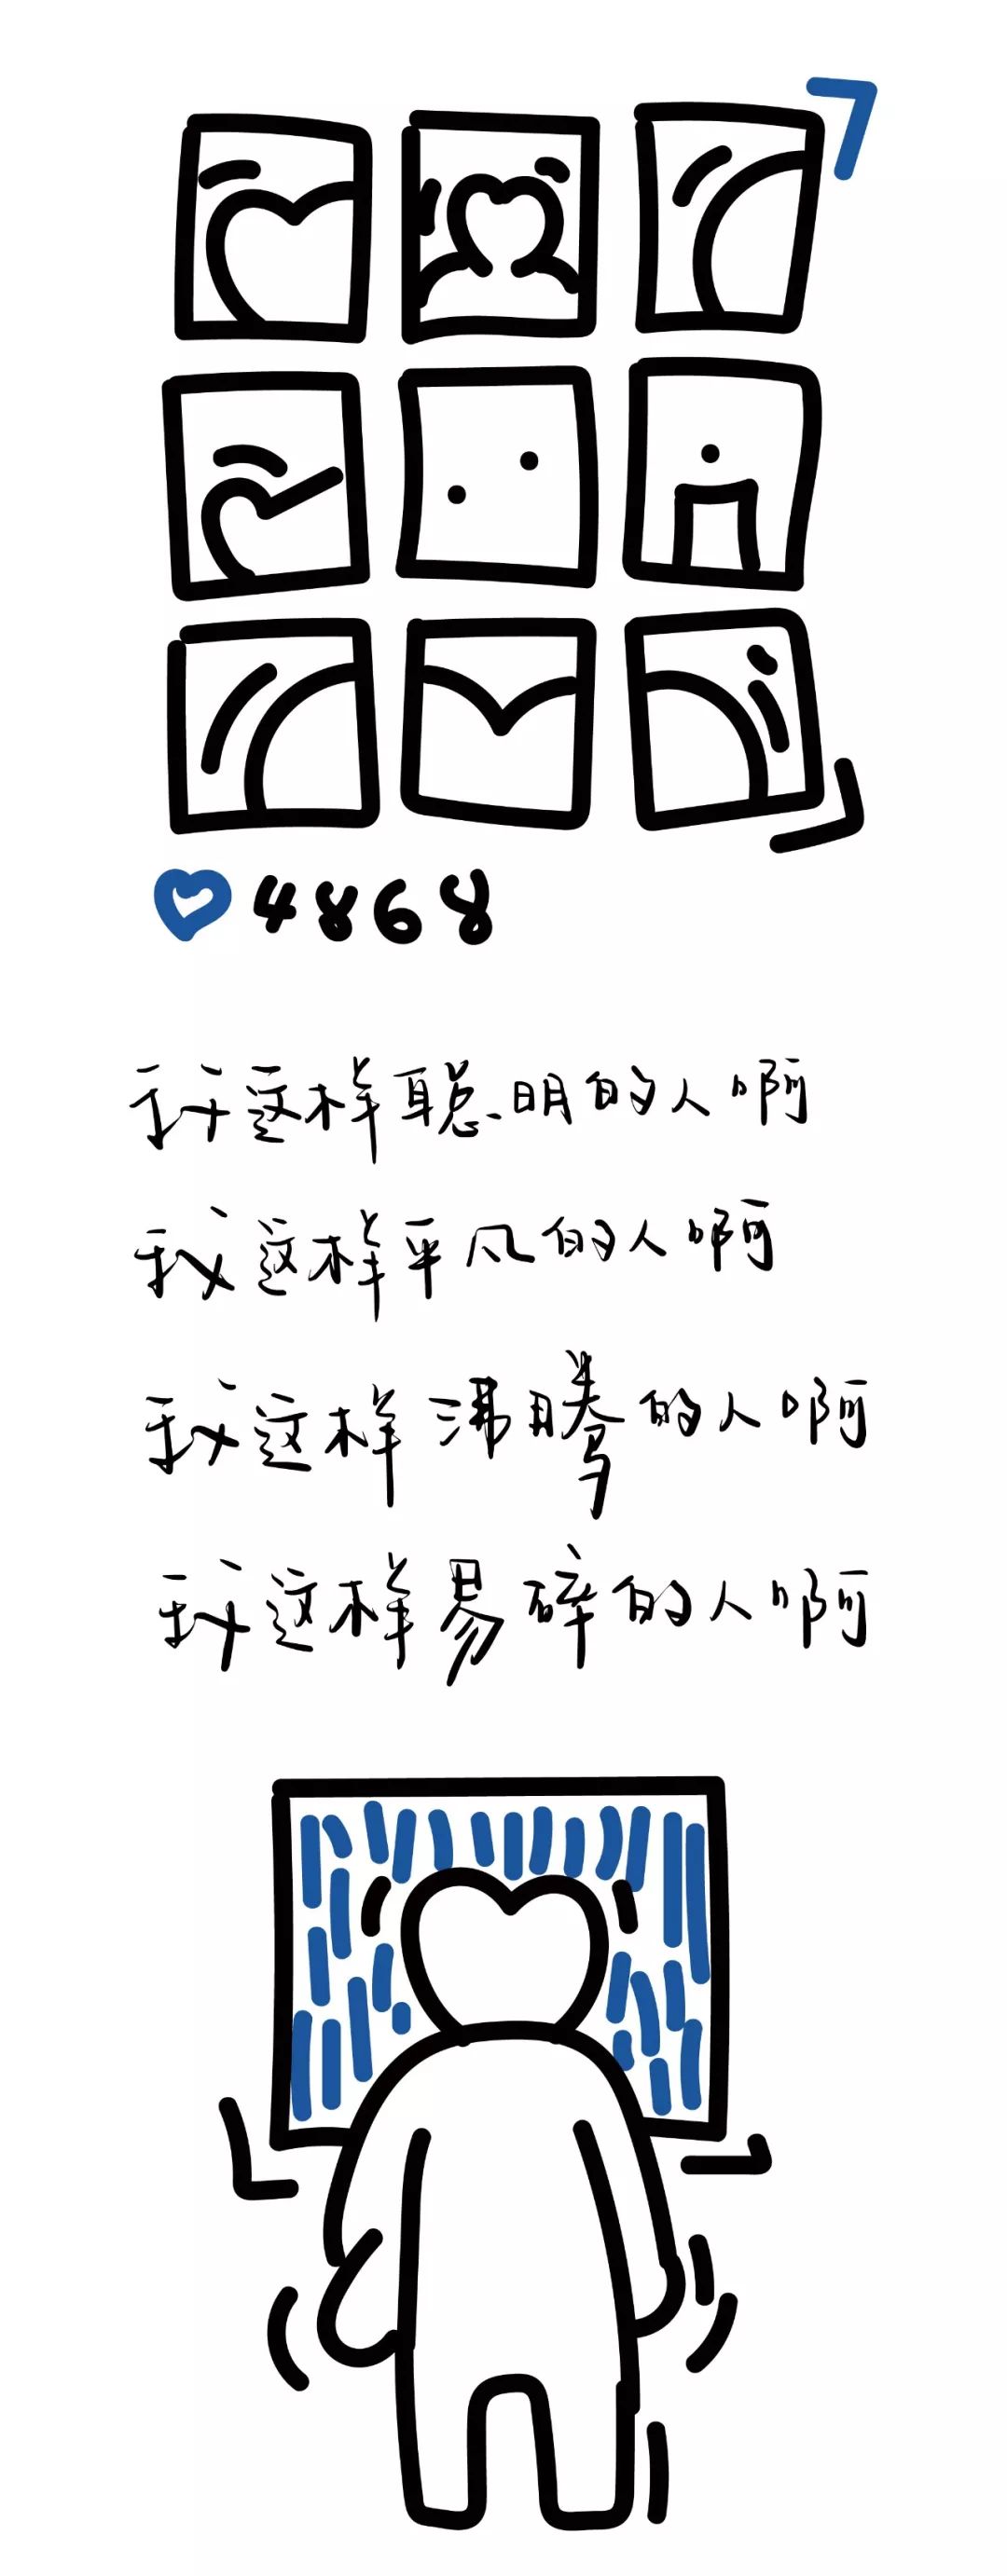 4868
我这样聪明的人啊
我这样平凡的人啊
我这样沸腾的人啊
我这样易碎的人啊